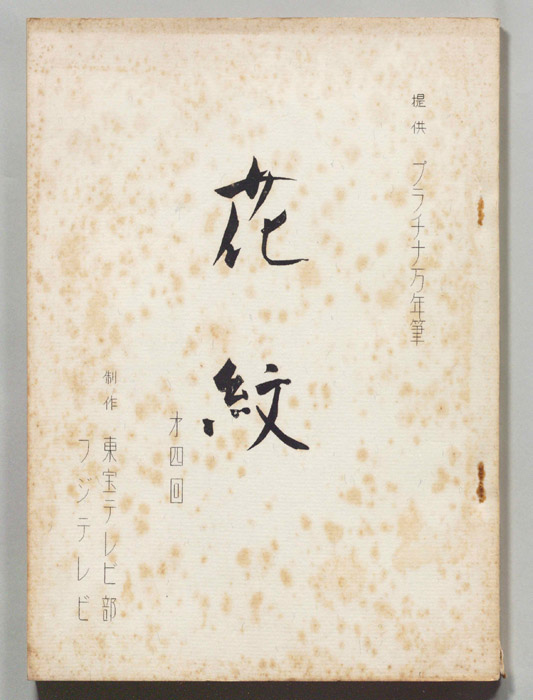 提供 プラチナ万年筆
花紋
才四回
制作 東宝テレビ部
フジテレビ